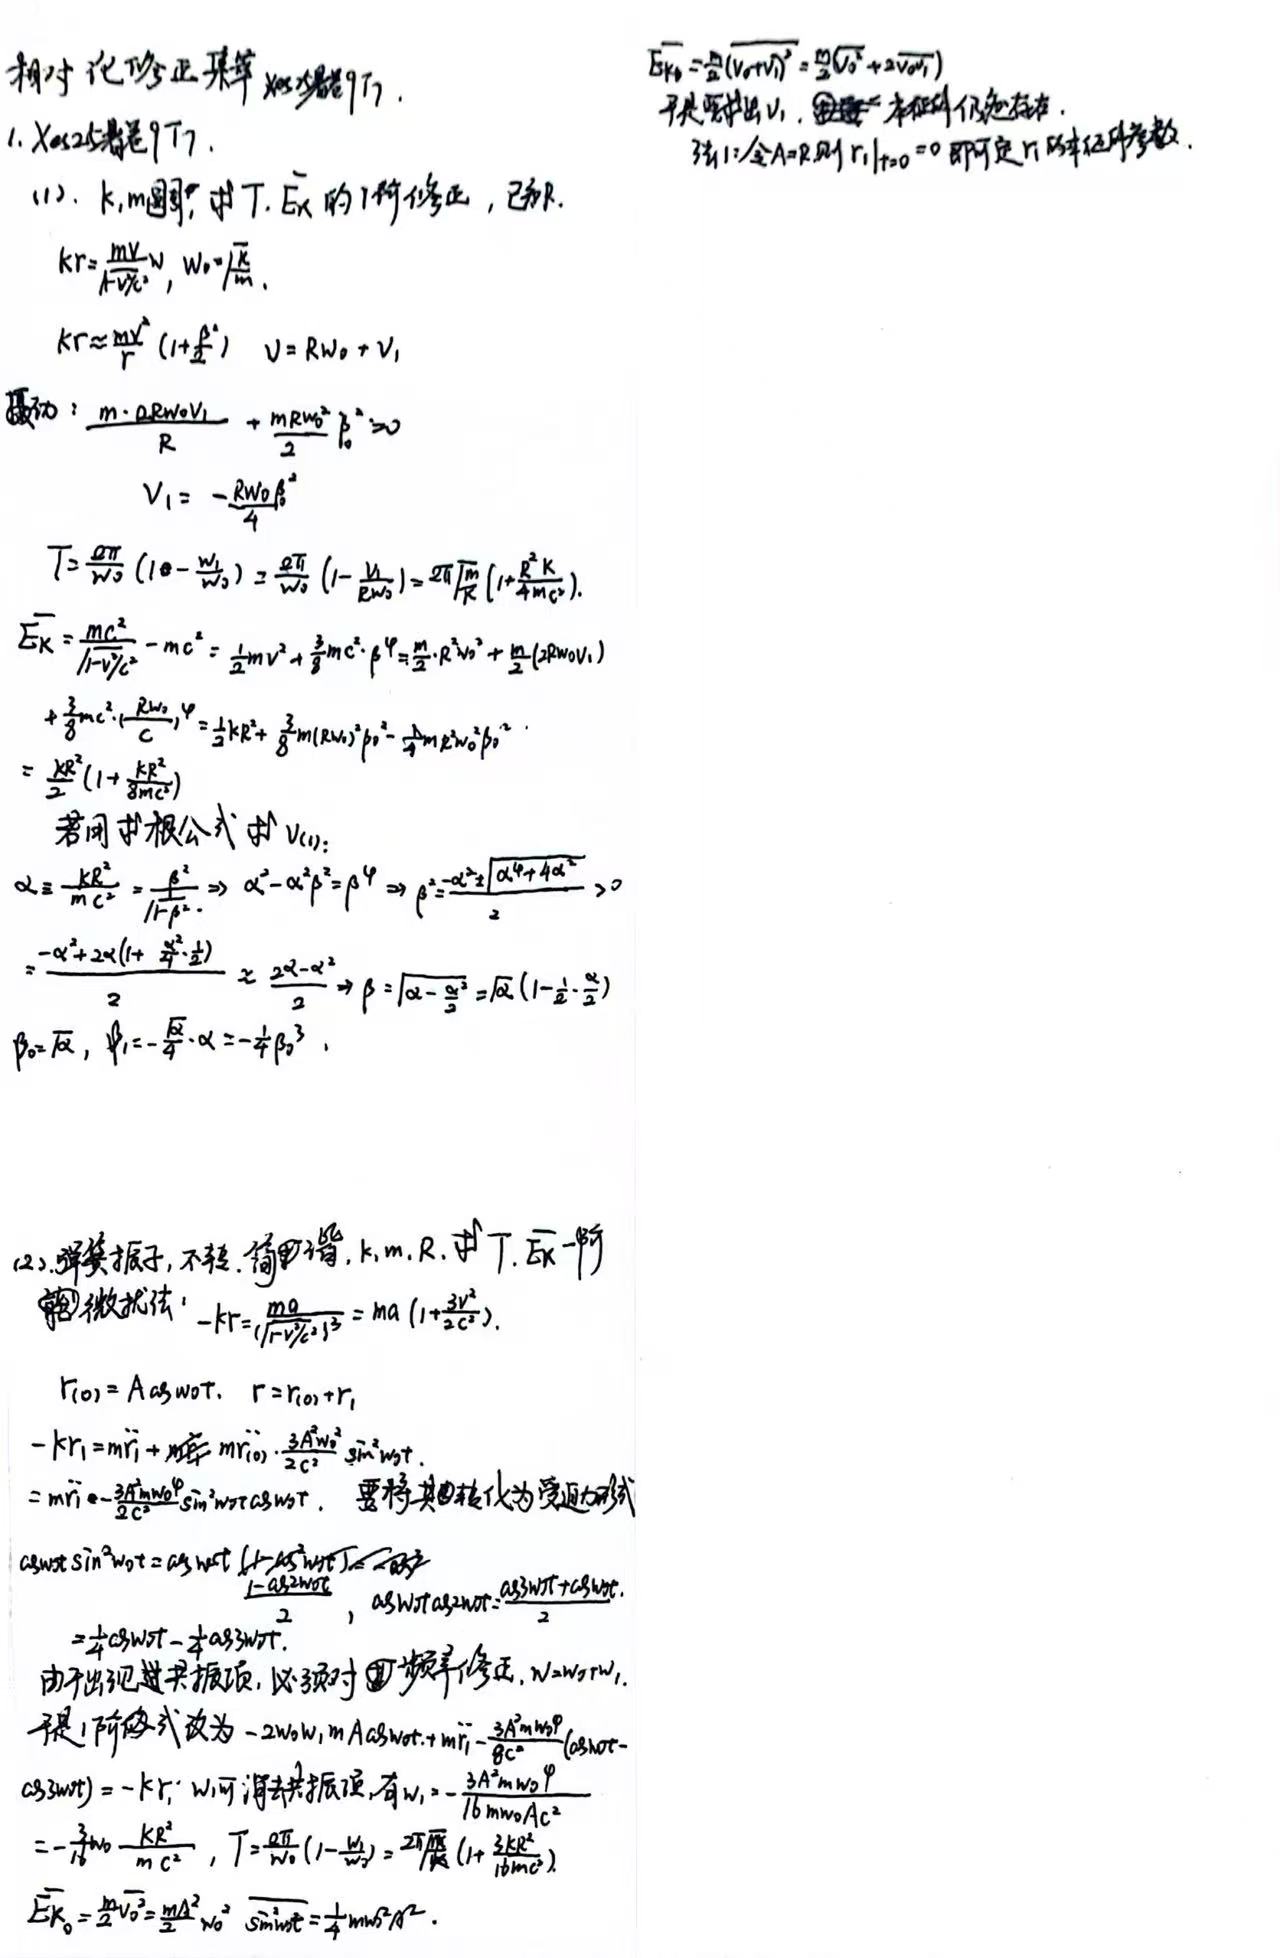 相对论修正集萃
1. Xos25暑卷9T7.
(1). k,m圆周, 求T. \overline{E_k} 的1阶修正, 已知R.
kr=\frac{mv}{\sqrt{1-v²/c²}}w, w₀=\sqrt{\frac{k}{m}}.
kr≈\frac{mv²}{r}(1+\frac{β²}{2}) v=Rw₀+v₁
摄动: \frac{m·2Rw₀v₁}{R}+\frac{mRw₀²}{2}β₀²=0
v₁=-\frac{Rw₀β₀²}{4}
T=\frac{2π}{w₀}(1-\frac{w₁}{w₀})=\frac{2π}{w₀}(1-\frac{v₁}{Rw₀})=2π\sqrt{\frac{m}{k}}(1+\frac{R²k}{4mc²}).
\overline{E_k}=\frac{mc²}{\sqrt{1-v²/c²}}-mc²=\frac{1}{2}mv²+\frac{3}{8}mc²·β⁴=\frac{m}{2}·R²w₀²+\frac{m}{2}(2Rw₀v₁)
+\frac{3}{8}mc²·(\frac{Rw₀}{c})⁴=\frac{1}{2}kR²+\frac{3}{8}m(Rw₀)²β₀²-\frac{1}{4}mR²w₀²β₀².
=\frac{kR²}{2}(1+\frac{kR²}{8mc²})
若用求根公式求v₍₁₎:
α≡\frac{kR²}{mc²}=\frac{β²}{\sqrt{1-β²}}.⇒α²-α²β²=β⁴⇒β²=\frac{-α²±\sqrt{α⁴+4α²}}{2}>0
=\frac{-α²+2α(1+\frac{α²}{4}·\frac{1}{2})}{2}≈\frac{2α-α²}{2}⇒β=\sqrt{α-\frac{α²}{2}}=\sqrt{α}(1-\frac{1}{2}·\frac{α}{2})
β₀=\sqrt{α}, β₁=-\frac{\sqrt{α}}{4}·α=-\frac{1}{4}β₀³,
(2).弹簧振子,不转.简谐,k.m.R.求T.\overline{E_k}一阶
微扰法: -kr=\frac{ma}{(\sqrt{1-v²/c²})³}=ma(1+\frac{3v²}{2c²}).
r₍₀₎=Acosw₀t. r=r₍₀₎+r₁
-kr₁=m\ddot{r}₁+m\ddot{r}₍₀₎·\frac{3A²w₀²}{2c²}sin²w₀t.
=m\ddot{r}₁-\frac{3A³mw₀⁴}{2c²}sin²w₀tcosw₀t. 要将其转化为受迫力形式
cosw₀tsin²w₀t=cosw₀t\frac{1-cos2w₀t}{2}, cosw₀tcos2w₀t=\frac{cos3w₀t+cosw₀t}{2}.
=\frac{1}{4}cosw₀t-\frac{1}{4}cos3w₀t.
由于出现共振项,必须对频率修正,w=w₀+w₁.
于是1阶修式改为-2w₀w₁mAcosw₀t.+m\ddot{r}₁-\frac{3A³mw₀⁴}{8c²}(cosw₀t-
cos3w₀t)=-kr₁ w₁可消去共振项,有w₁=-\frac{3A³mw₀⁴}{16mw₀Ac²}
=-\frac{3}{16}w₀\frac{kR²}{mc²}, T=\frac{2π}{w₀}(1-\frac{w₁}{w₀})=2π\sqrt{\frac{m}{k}}(1+\frac{3kR²}{16mc²}).
\overline{E_k}₀=\frac{m}{2}\overline{v₀²}=\frac{mA²}{2}w₀²\overline{sin²w₀t}=\frac{1}{4}mw₀²A².
\overline{E_{k0}}=\frac{m}{2}\overline{(v₀+v₁)²}=\frac{m}{2}(\overline{v₀²}+2\overline{v₀v₁})
于是要求出v₁. 本征解仍然存在.
法1:令A=R则r₁|ₜ₌₀=0即可定r₁的本征解参数.